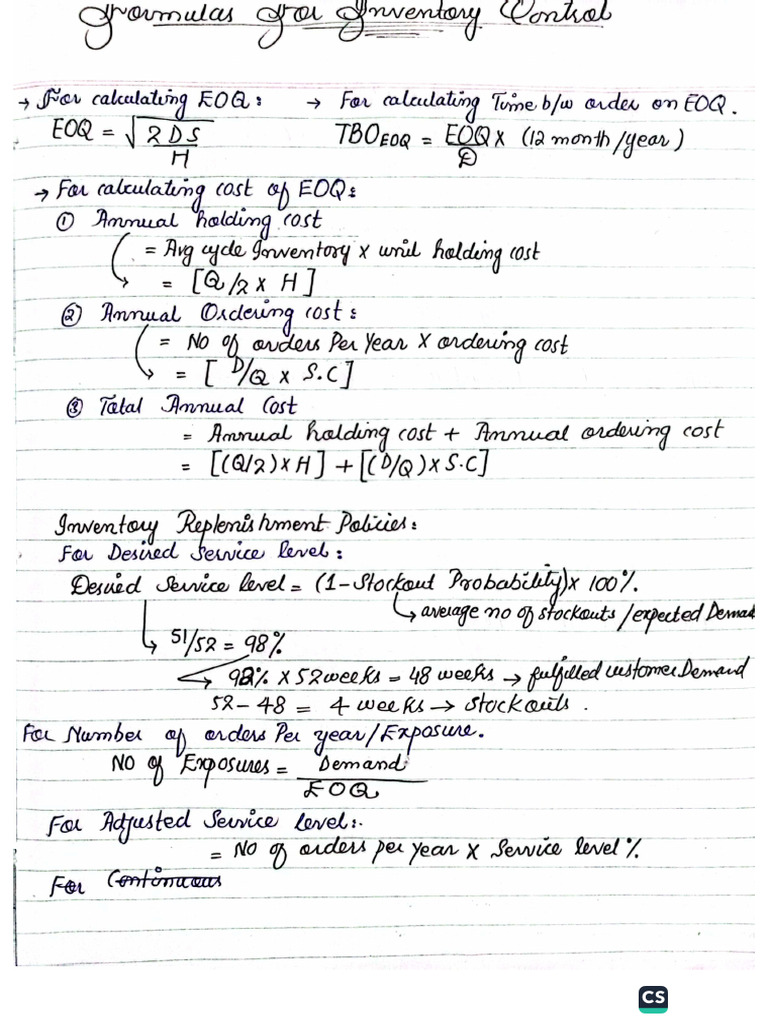 Formulas For Inventory Control
→ For calculating EOQ: → For calculating Time b/w order on EOQ.
EOQ = √2DS/H TBO EOQ = EOQ/D x (12 month/year)
→ For calculating cost of EOQ:
① Annual holding cost
= Avg cycle Inventory x unit holding cost
= [Q/2 x H]
② Annual Ordering cost:
= No of orders Per Year x ordering cost
= [D/Q x S.C]
③ Total Annual Cost
= Annual holding cost + Annual ordering cost
= [(Q/2) x H] + [(D/Q) x S.C]
Inventory Replenishment Policies:
For Desired Service level:
Desired Service level = (1 - Stockout Probability) x 100%.
↳ average no of stockouts / expected Demad
↳ 51/52 = 98%
98% x 52 weeks = 48 weeks → fulfilled customer Demand
52 - 48 = 4 weeks → stockouts.
For Number of orders Per year/Exposure.
NO of Exposures = Demand/EOQ
For Adjusted Service level:.
= No of orders per year x Service level %
For Continuous
CS